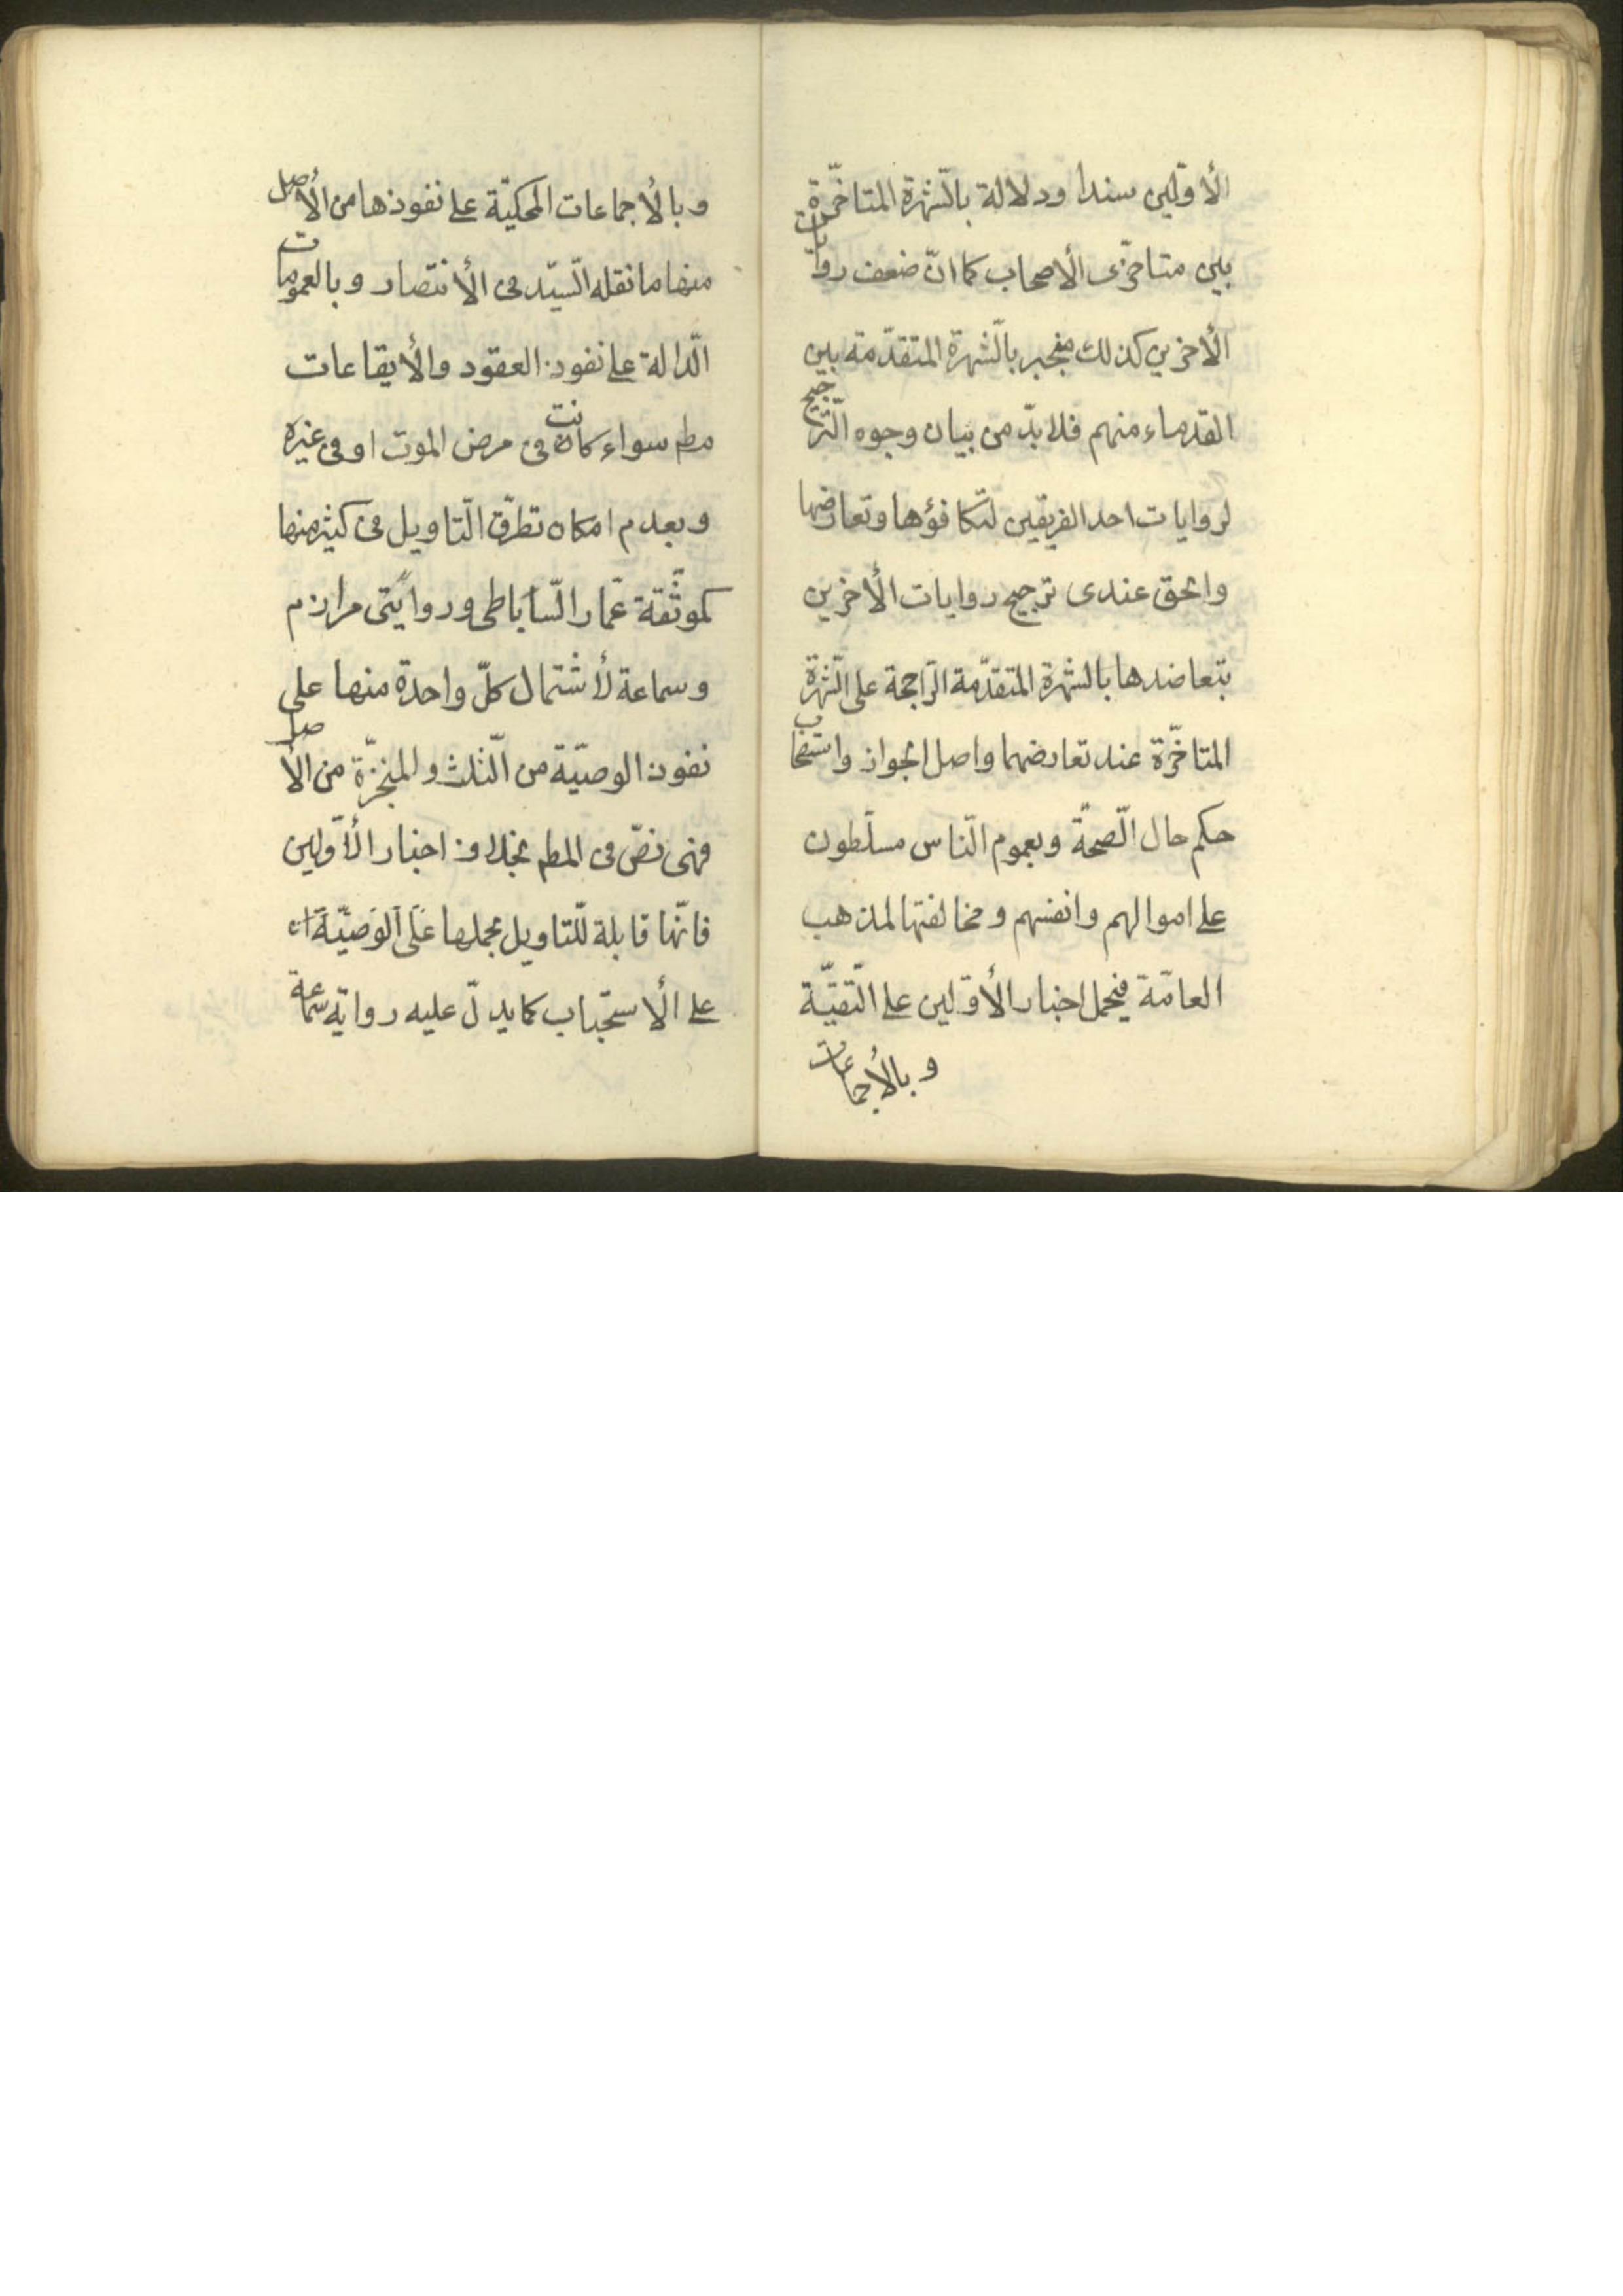 الأوّلين سندا ودلالة بالشّهرة المتاخّرة
بين متاخّرى الأصحاب كما انّ ضعف روايات
الأخرين كذلك منجبر بالشّهرة المتقدّمة بين
القدماء منهم فلا بدّ من بيان وجوه التّرجيح
لروايات احد الفريقين لتكافؤها وتعارضها
والحق عندى ترجيح روايات الأخرين
بتعاضدها بالشهرة المتقدّمة الرّاجحة على الشّهرة
المتاخّرة عند تعارضهما واصل الجواز واستصحاب
حكم حال الصّحة وبعموم النّاس مسلّطون
على اموالهم وانفسهم ومخالفتها لمذهب
العامّة فيحمل اخبار الأوّلين على التّقيّة
وبالأجماعات
وبالأجماعات المحكيّة على نفوذها من الأصل
منها ما نقله السّيّد فى الأنتصار وبالعمومات
الدّالة على نفوذ العقود والأيقاعات
مطم سواء كانت فى مرض الموت او فى غيره
وبعدم امكان تطرّق التّاويل فى كثير منها
كموثّقة عمّار السّاباطى وروايتى مرازم
وسماعة لأشتمال كلّ واحدة منها على
نفوذ الوصيّة من الثّلث والمنجّزة من الأصل
فهى نصّ فى المطم بخلاف اخبار الأوّلين
فانّها قابلة للتّاويل بحملها على الوصيّة او
على الأستحباب كما يدلّ عليه رواية سماعة